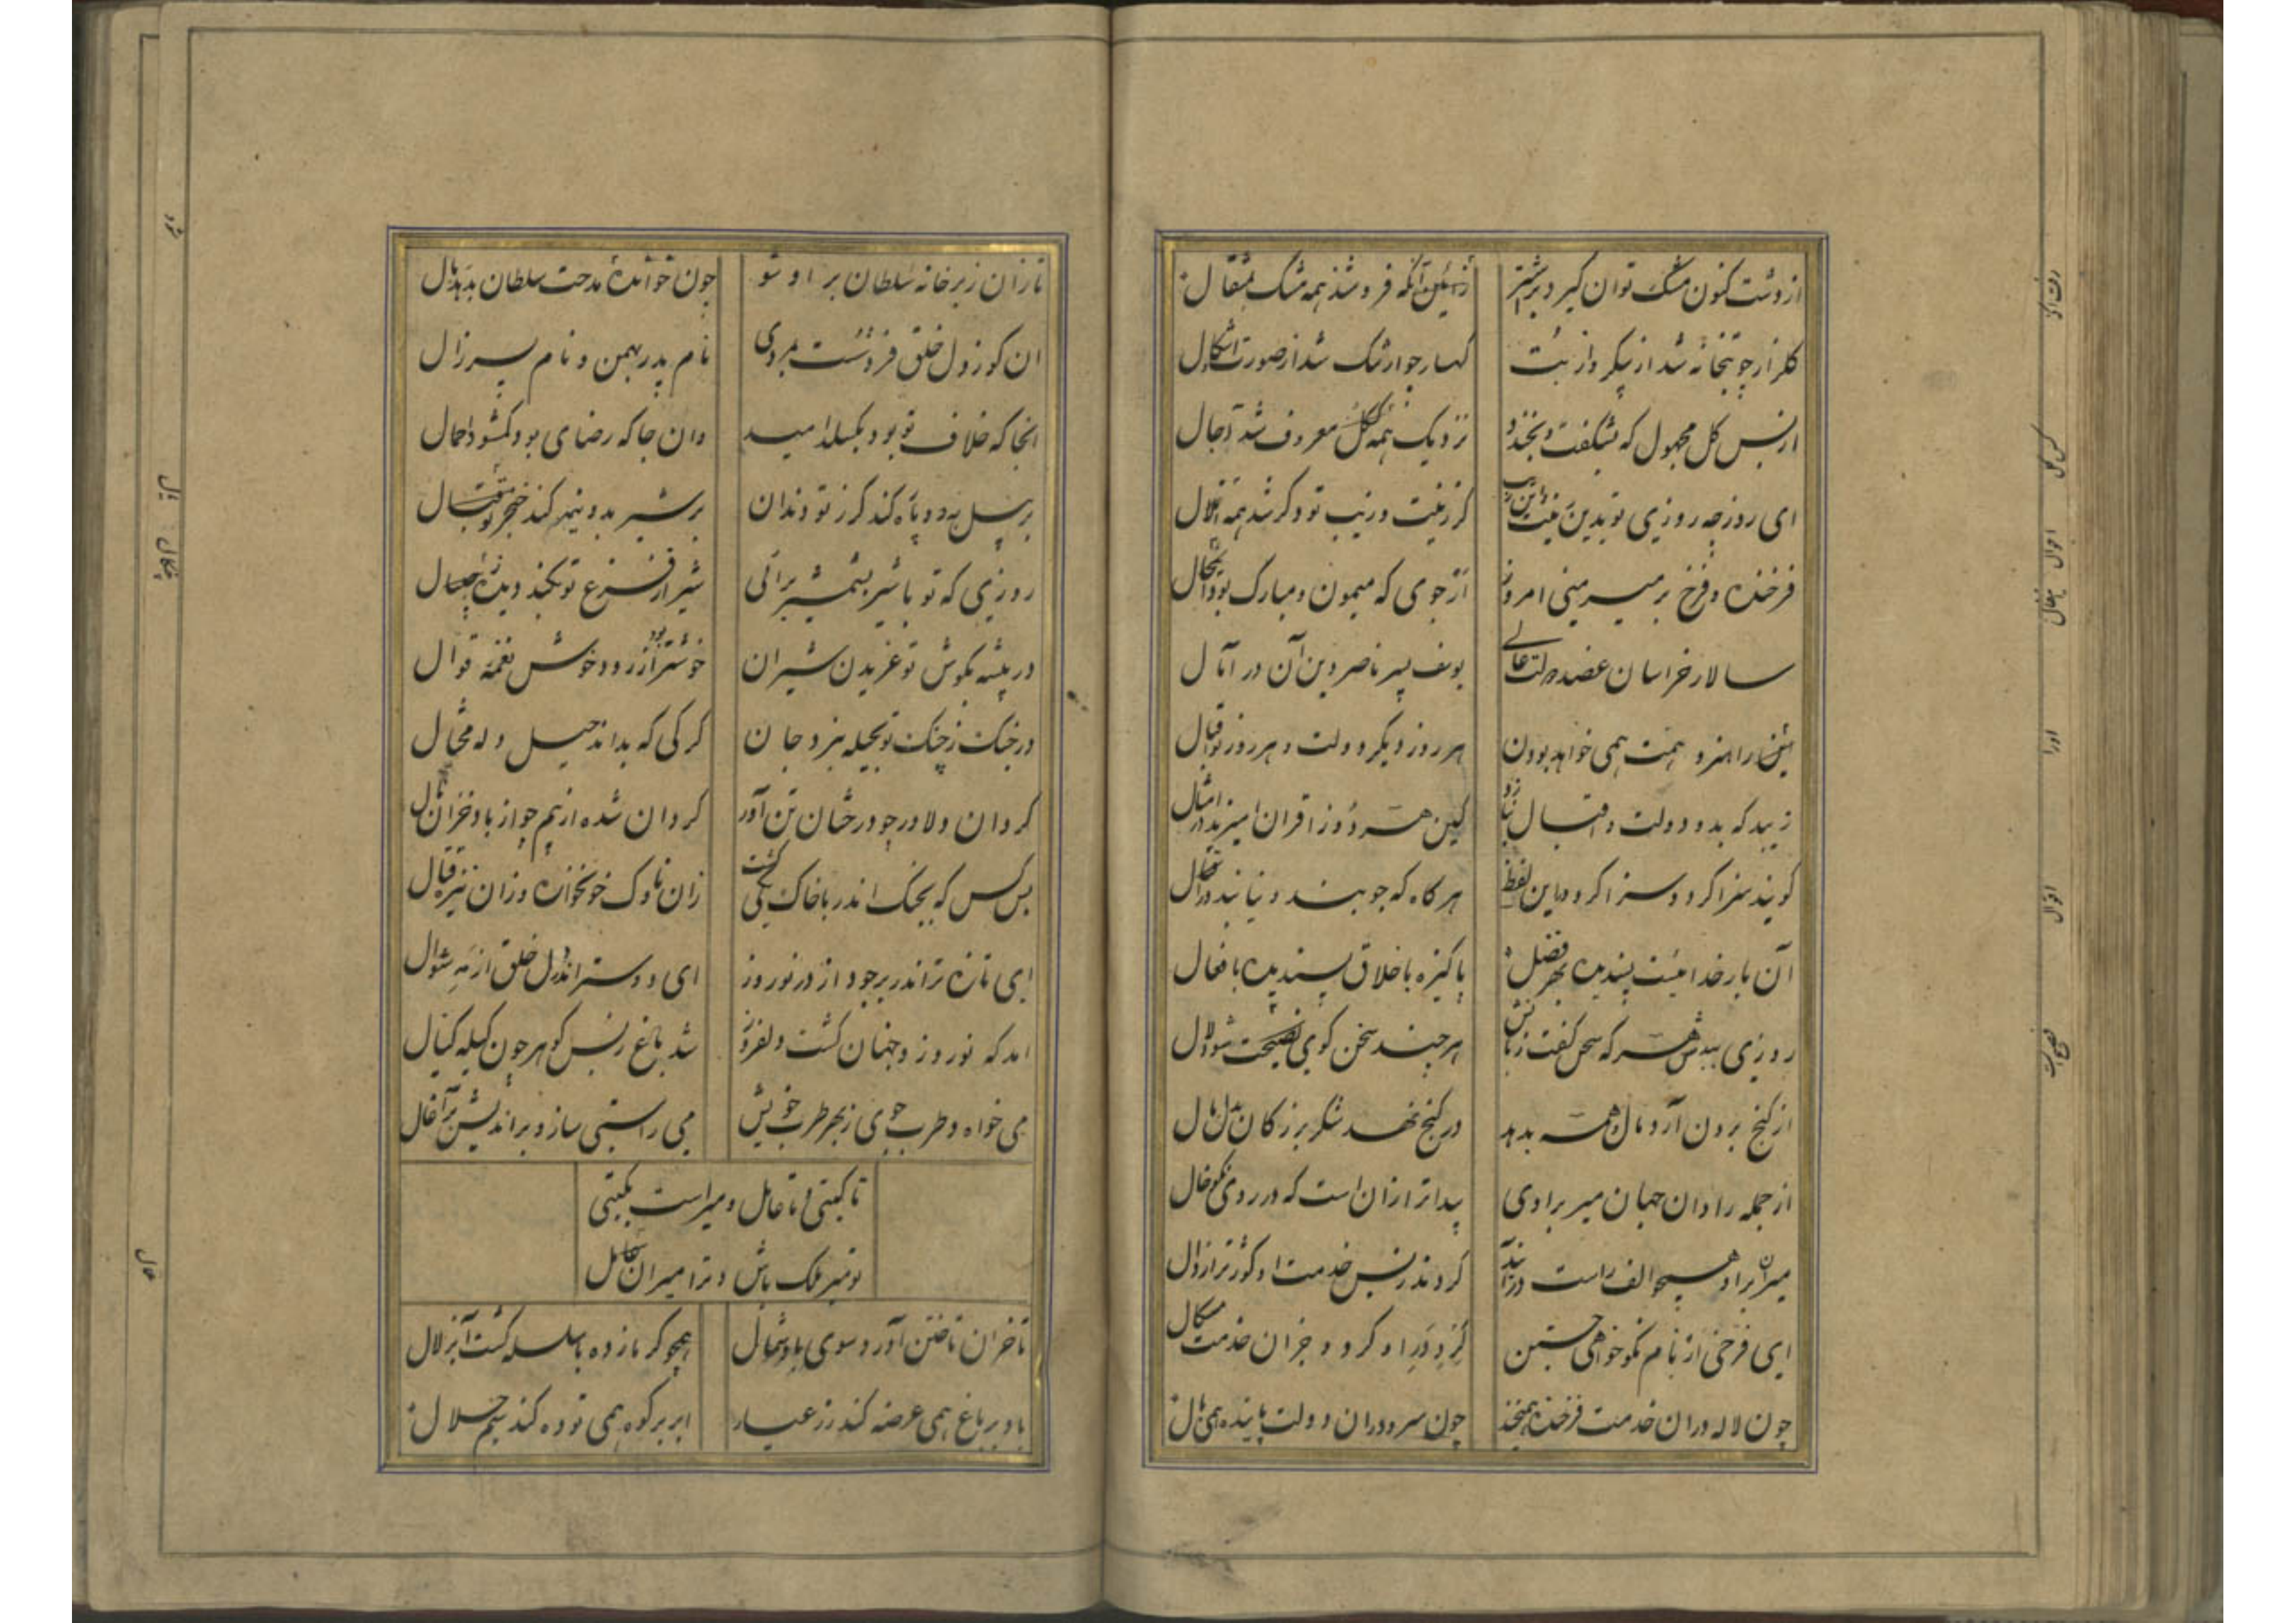 از دشت کنون مشک توان کرد بر اشتر
زین آنکه فروشند همه مشک بمثقال
گلزار چو بتخانه شد از پیکر و از بت
کهسار چو ارتنگ شد از صورت و اشکال
از بس گل مجهول که بشکفت و بخندد
نزدیک همه کس گل معروف شد آخال
ای روز چه روزی تو بدین زینت و این زیب
کز زینت و زیب تو دگر شد همه احوال
فرخنده و فرخ بر میر منی امروز
از جوی که میمون و مبارک بود
سالار خراسان عضد دولت عالی
یوسف پسر ناصر دین آن در آمال
میری را هنر و همت همی خواهد بودن
هر روز دیگر دولت و هر روز نو اقبال
زیبد که بدو دولت و اقبال بنازد
کین هر دو ز اقران امیرند در امثال
گویند سزا کرد و سزا کرد و باین لفظ
هر گاه که جویند و نیابند در
آن بار خدائیست پسندیده بهر فضل
پاکیزه باخلاق پسندیده بافعال
روزی ببدش هر که سخن گفت زبانش
هر چند سخن گوی فصیحت شود لال
از گنج برون آرد مال و همه بدهد
در گنج نهد شکر بزرگان بدل مال
از جمله رادان جهان میر برادی
پیداتر از آن است که در روی نکو خال
میران بر او همچو الف راست درآیند
گردند ز بس خدمت او گوژتر از دال
ای فرخی از نام نکو خواهی جستن
گرد در او گرد و جز آن خدمت مسگال
چون لاله در آن خدمت فرخنده همیخند
چون سرو در آن دولت پاینده همی بال
تا زان زبر خانه سلطان بر او شو
چون خوانده مدحت سلطان
آن کو ز دل خلق فروشست بمردی
نام پدر بهمن و نام پسر زال
آنجا که خلاف تو بود بگسلد امید
وان جا که رضای بود و گمشود اعمال
بر پیل به دو پاره کند گرز تو دندان
بر شیر بدو نیم کند خنجر تو یال
روزی که تو با شیر بشمشیر برآئی
شیر از فزع تو بکند دیده بچنگال
در بیشه بگوش تو غریدن شیران
خوشتر بود از رود خوش و نغمه قوال
در جنگ ز چنگ تو بحیله نبرد جان
گرگی که بداند حیل و له محتال
گردان دلاور چو درختان تن آور
گردان شده از بیم چو از باد خزان نال
بس کس که بجنگ اندر با خاک یکی گشت
زان ناوک خونخواره و زان نیزه قتال
ای تازه‌تر اندر بر جود از در نوروز
ای دوستر اندر دل خلق از مه شوال
آمد که نوروز و جهان گشت دلفروز
شد باغ ز بس گوهر چون کیله کیال
می خواه و طرب جوی ز بهر طرب خویش
می راستی ساز و بر اندیش بر آغال
تا گیتی و تا عامل و میراست بگیتی
تو میر ملک باش و ترا میران عامل
تا خزان تاختن آورد سوی باد شمال
همچو سرمازده با سلسله گشت آب زلال
باد بر باغ همی عرضه کند زر عیار
ابر بر کوه همی توده کند سیم حلال